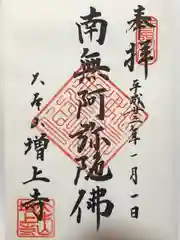 奉拝
平成廿二年一月一日
南無阿弥陀佛
大本山
増上寺